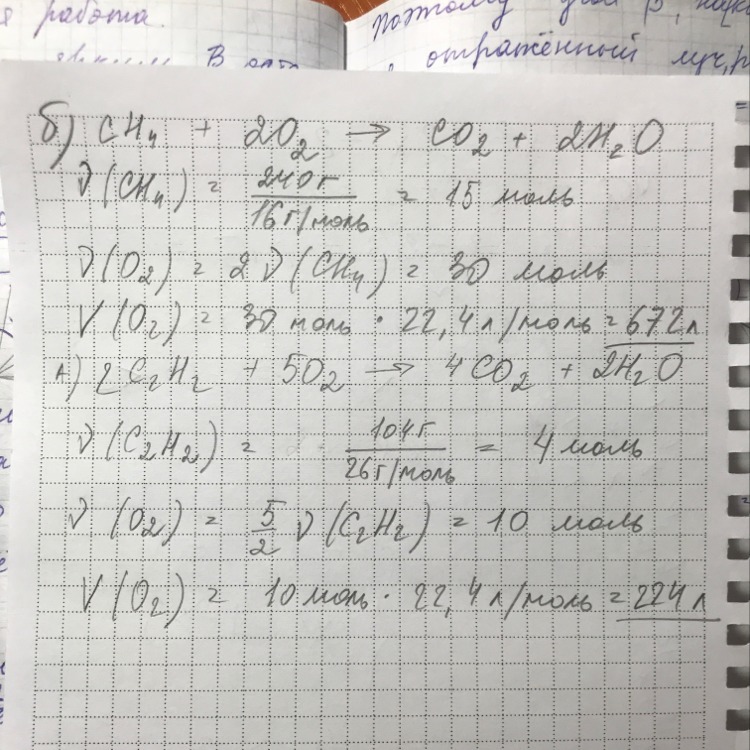 я работа.
Поэтому угол β,
В
отражённый луч,
б) CH₄ + 2O₂ → CO₂ + 2H₂O
ν(CH₄) = 240г / 16г/моль = 15 моль
ν(O₂) = 2ν(CH₄) = 30 моль
V(O₂) = 30 моль · 22,4л/моль = 672л
а) 2C₂H₂ + 5O₂ → 4CO₂ + 2H₂O
ν(C₂H₂) = 104г / 26г/моль = 4 моль
ν(O₂) = 5/2 ν(C₂H₂) = 10 моль
V(O₂) = 10 моль · 22,4л/моль = 224л